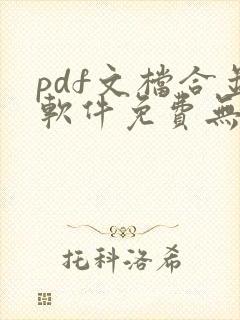 pdf文檔合
軟件免費無
托科洛希